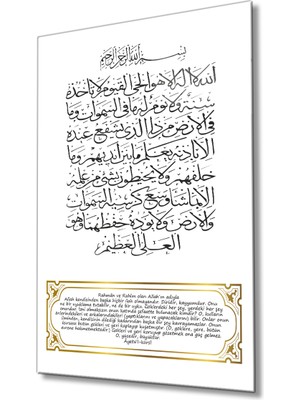 بسم الله الرحمن الرحيم
الله لا اله الا هو الحي القيوم لا تأخذه
سنة ولا نوم له ما في السموات وما
في الارض من ذا الذي يشفع عنده
الا باذنه يعلم ما بين أيديهم وما
خلفهم ولا يحيطون بشئ من علمه
الا بما شاء وسع كرسيه السموات
والارض ولا يؤده حفظهما وهو
العلي العظيم
Rahmân ve Rahîm olan Allah'ın adıyla
Allah kendisinden başka hiçbir ilah olmayandır. Diridir, kayyumdur. Onu
ne bir uyuklama tutabilir, ne de bir uyku. Göklerdeki her şey, yerdeki her şey
onundur. İzni olmaksızın onun katında şefaatte bulunacak kimdir? O, kulların
önlerindekileri ve arkalarındakileri (yaptıklarını ve yapacaklarını) bilir. Onlar onun
ilminden, kendisinin dilediği kadarından başka bir şey kavrayamazlar. Onun
kürsüsü bütün gökleri ve yeri kaplayıp kuşatmıştır. (O, göklere, yere, bütün
evrene hükmetmektedir.) Gökleri ve yeri koruyup gözetmek ona güç gelmez.
O, yücedir, büyüktür.
Ayete'l-kürsî